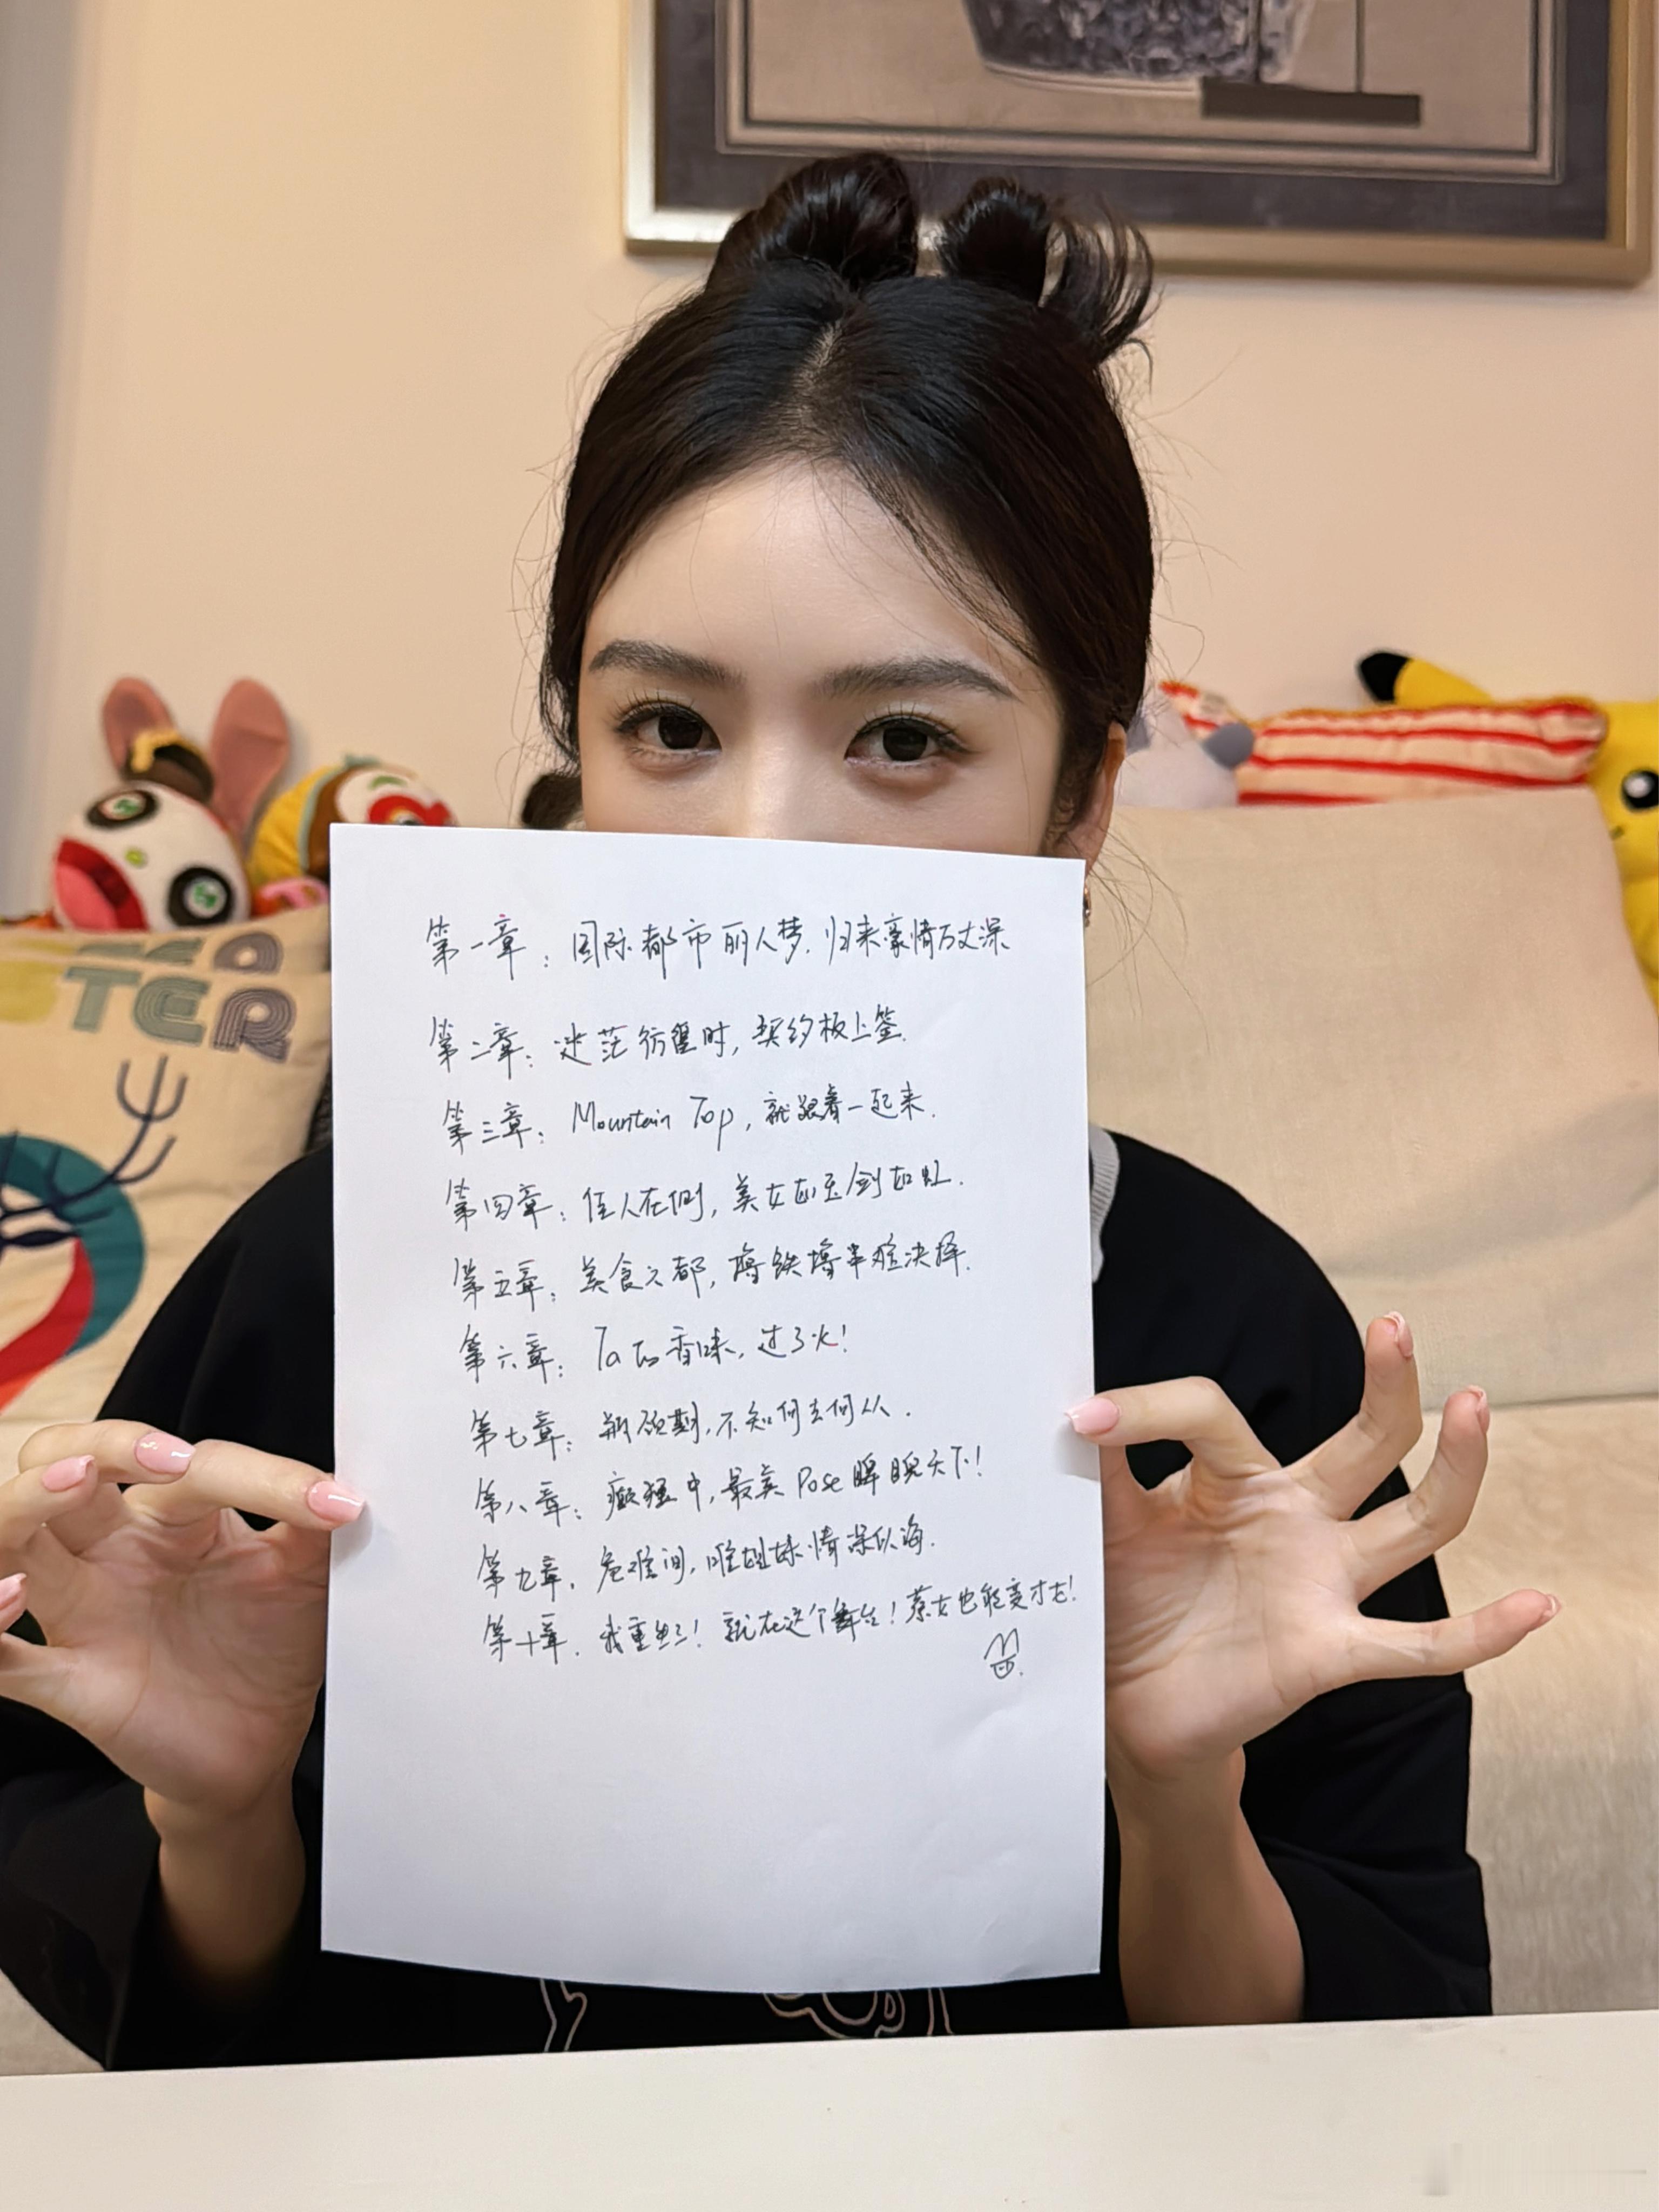 第一章：国际都市丽人梦，归来豪情万丈深
第二章：迷茫彷徨时，契约板上签.
第三章：Mountain Top，就跟着一起来.
第四章：佳人在侧，美女如玉剑如虹.
第五章：美食之都，荤铁荤半难决择.
第六章：Ta的香味，过了火！
第七章：瓶颈期，不知何去何从.
第八章：癫狂中，最美Pose睥睨天下！
第九章，危难间，唯姐妹情深似海.
第十章，我重生了！就在这个舞台！蔡女也能变才女！
TER